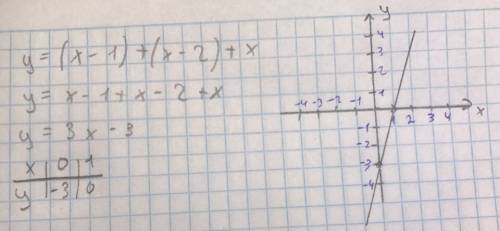 y = (x - 1) + (x - 2) + x
y = x - 1 + x - 2 + x
y = 3x - 3
x | 0 | 1
y | -3 | 0
y
4
3
2
1
-4 -3 -2 -1 1 2 3 4 x
-1
-2
-3
-4